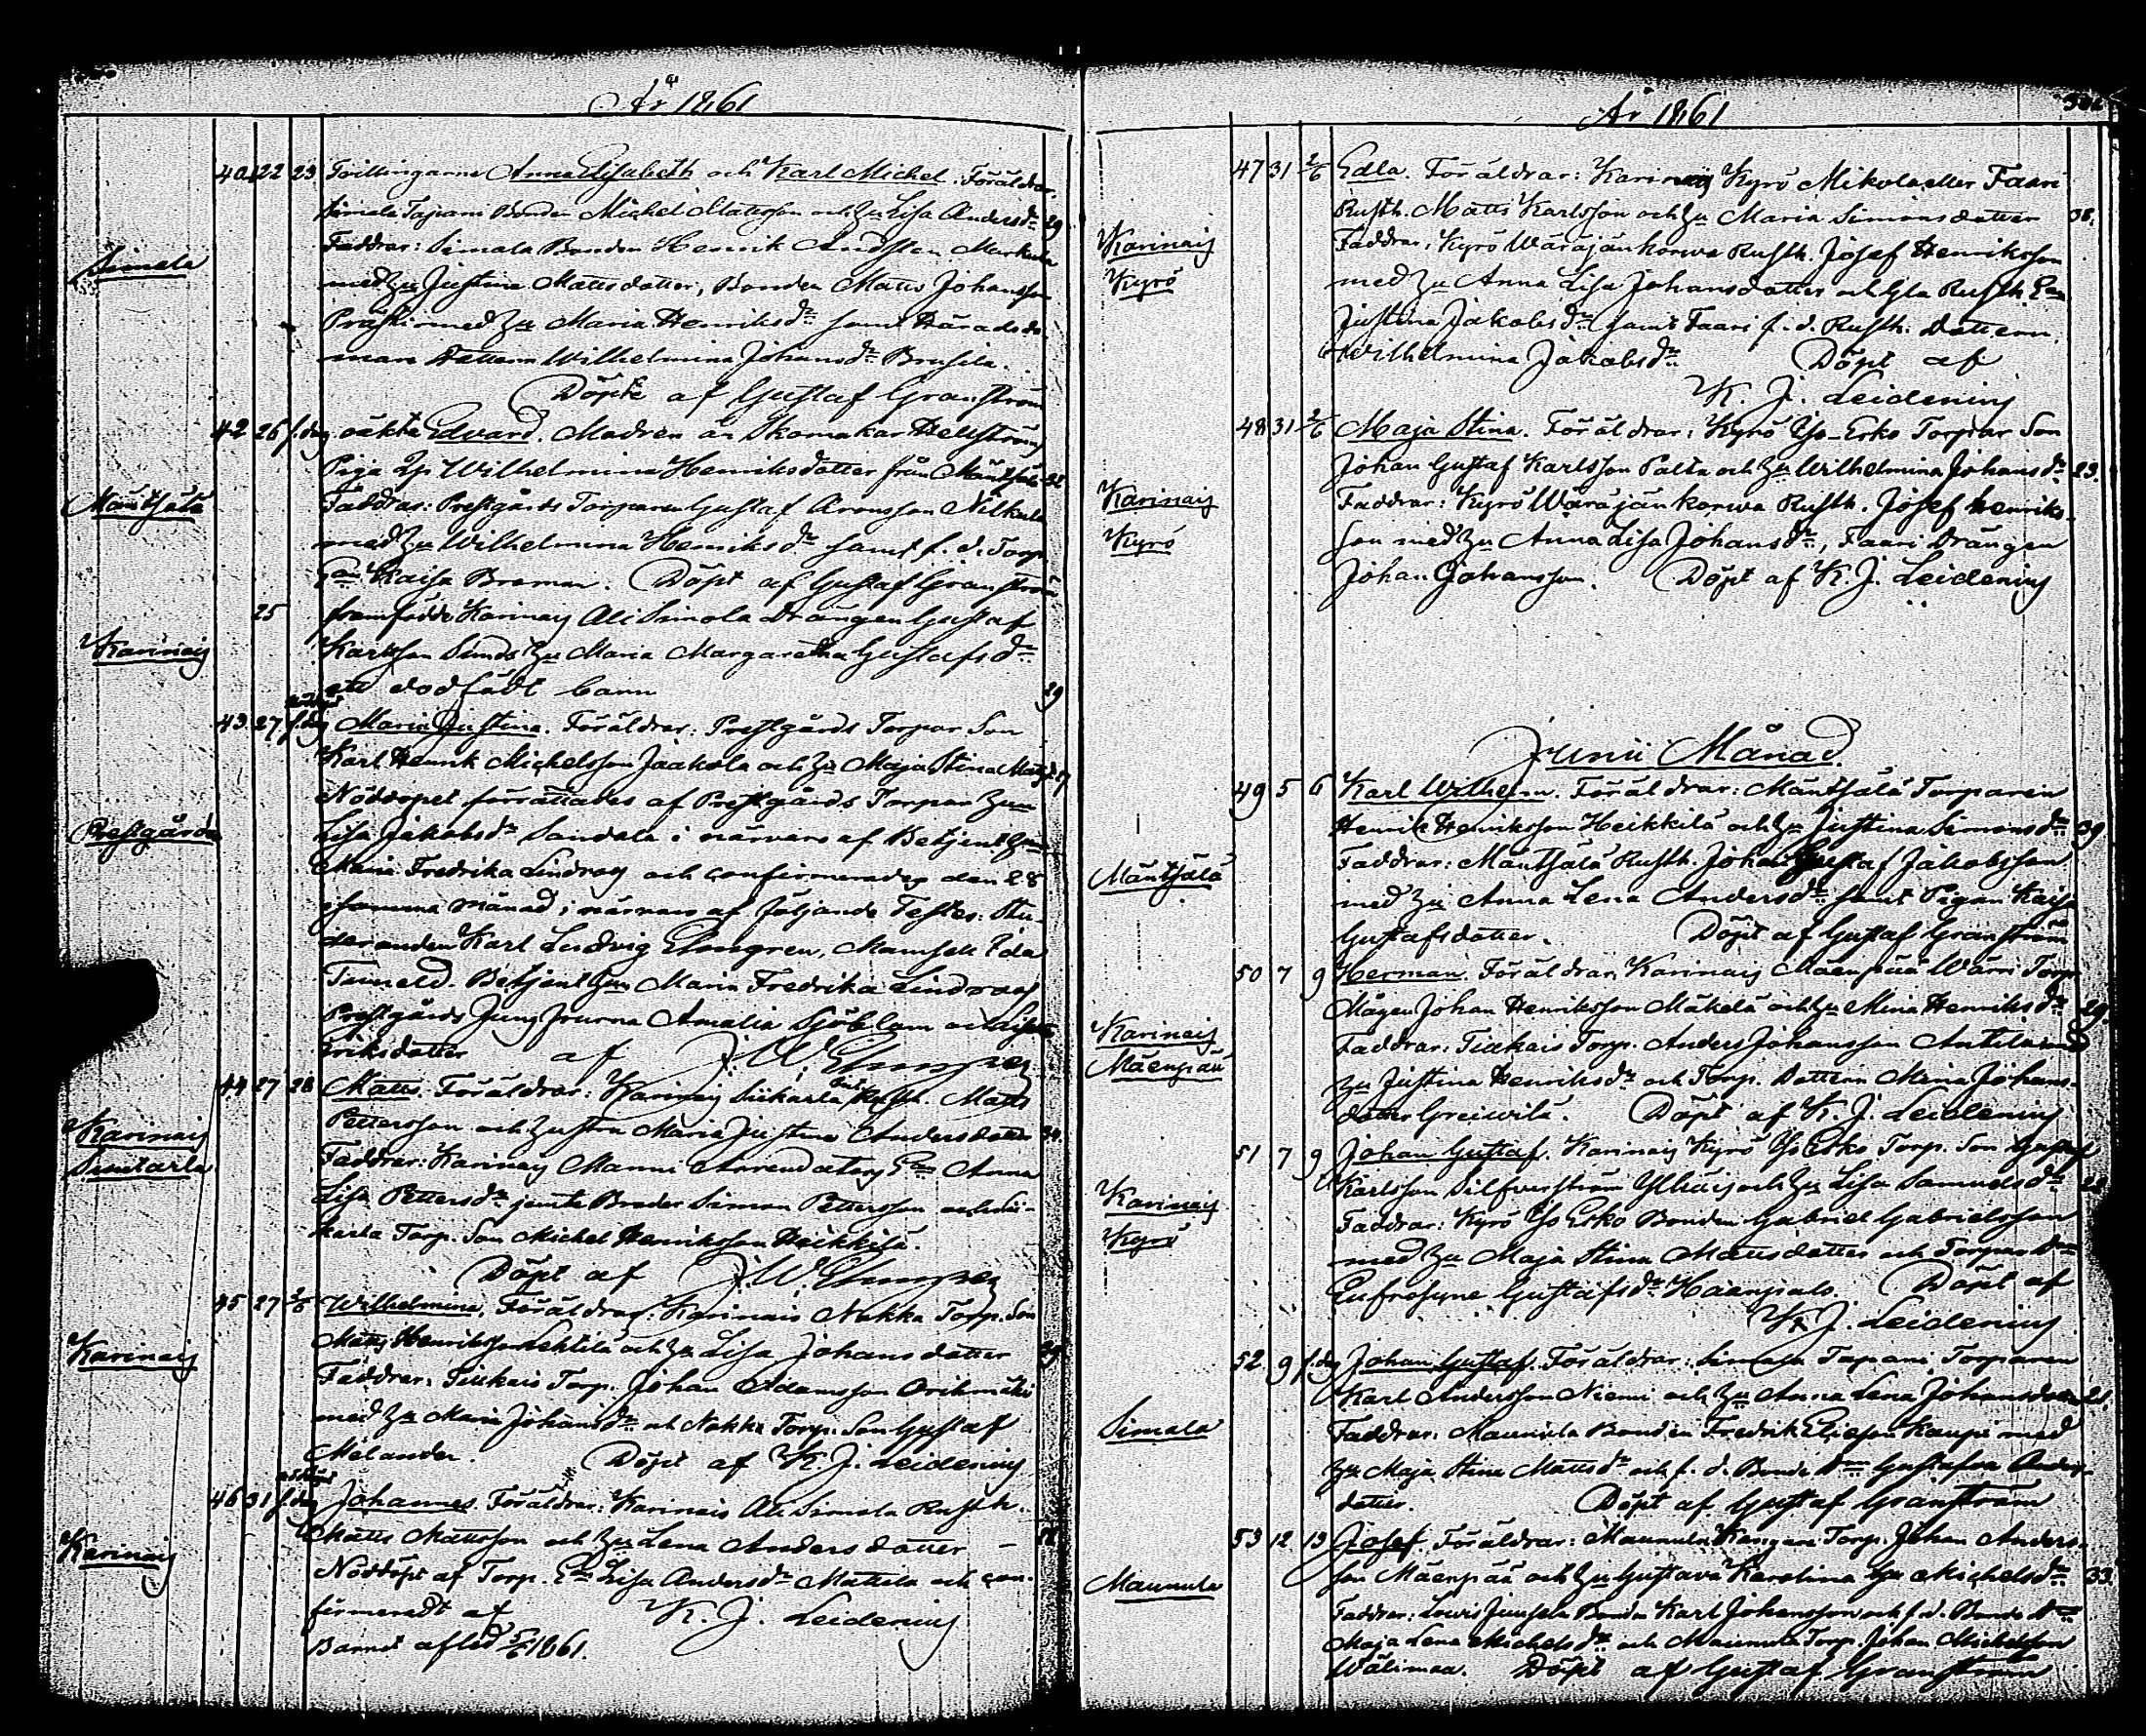 År 1861
40,41 22 23 Tvillingarne Anna Elisabeth och Karl Michel. Föräldrar.
Simala Tapani Bonden Michel Matsson och Hu Lisa Andersdr 29
Simala
Faddrar: Simala Bonden Henrik Andersson Markula
med Hu Justina Mattsdotter, Bonden Matts Johansson
Prästi med Hu Maria Henriksdr samt Härads do
mare Dottern Wilhelmina Johansdr Brusila.
Döpte af Gustaf Granström
42 26 f.dag oäkta Edvard. Modren är Skomakar Hellströms
Piga Qp Wilhelmina Henriksdotter från Mäntsälä 32
Mäntsälä
Faddrar: Prestgårds Torparen Gustaf Aronsson Nilkula
med Hu Wilhelmina Henriksdr samt f. d. Torp.
En Kaisa Broman. Döpt af Gustaf Granström
25 framfödde Karinais Ali Simola Drängen Gustaf
Karinais
Karlsson Sunds Hu Maria Margaretha Gustafsdr
ett dödfödt barn 29
43 27 f.dag Maria Justina. Föräldrar: Prestgårds Torpar Son
Karl Henrik Michelsson Jaakola och Hu Maja Stina Mattsd
Nöddopet förrättades af Prestgårds Torpar Hun
Prestgården
Lisa Jakobsdr Sandala i närvaro af Betjent Hun
Maria Fredrika Lindroos och confirmerades den 28
samma månad i närvaro af följande Testes: Stu-
deranden Karl Ludvig Elmgren, Mamsell Ida
Tuneld. Betjent Hun Maria Fredrika Lindroos
Prestgårds Jungfrurna Amalia Sjöblom och
Eriksdotter af J. W. Elmgren
44 27 28 Matts. Föräldrar: Karinais Siikarla Rusth. Matts
Karinais
Pettersson och Hustru Maria Justina Andersdotter 34.
Siikarla
Faddrar: Karinais Manni Arrendators En Anna
Lisa Pettersdr jemte Broder Simon Pettersson och Sii-
karla Torp. Son Michel Henriksson Heikkilä.
Döpt af J. W. Elmgren
45 27 2/6 Wilhelmina. Föräldrar: Karinais Nokka Torp. Son
Matts Henriksson Lehtilä och Hu Lisa Johansdotter
Karinais
Faddrar: Tiukais Torp. Johan Adamsson Orihmäki
med Hu Maria Johansdr och Nokka Torp. Son Gustaf
Melander. Döpt af K. J. Leidenius
46 31 f.dag Johannes. Föräldrar: Karinais Ali Simola Rusth.
Matts Mattsson och Hu Lena Andersdotter –
Karinais
Nöddöpt af Torp. En Lisa Andersdr Mattila och con-
firmeradt af K. J. Leidenius
Barnet afled 5/6 1861.
År 1861
47 31 2/6 Edla. Föräldrar: Karinais Kyrö Mikola eller Faari
Rusth. Matts Karlsson och Hu Maria Simonsdotter 38.
Karinais
Faddrar: Kyrö Wäräjänkorwa Rusth. Josef Henriksson
Kyrö
med Hu Anna Lisa Johansdotter och Yla Rusth. En
Justina Jakobsdr samt Faari f. d. Rusth. Dottern
Wilhelmina Jakobsdr. Döpt af
K. J. Leidenius
48 31 2/6 Maja Stina. Föräldrar: Kyrö Yso-Erko Torpar Son
Johan Gustaf Karlsson Palta och Hu Wilhelmina Johansdr 23.
Karinais
Faddrar: Kyrö Wäräjänkorwa Rusth. Josef Henriks-
Kyrö
son med Hu Anna Lisa Johansdr, Faari Drängen
Johan Johansson. Döpt af K. J. Leidenius
Junii Månad.
49 5 6 Karl Wilhelm. Föräldrar: Mäntsälä Torparen
Henrik Henriksson Heikkilä och Hu Justina Simonsdr 39.
Mäntsälä
Faddrar: Mäntsälä Rusth. Johan Gustaf Jakobsson
med Hu Anna Lena Andersdr samt Pigan Kaisa
Gustafsdotter. Döpt af Gustaf Granström
50 7 9 Herman. Föräldrar: Karinais Mäenpää Wärri Torp.
Mågen Johan Henriksson Mäkelä och Hu Mina Henriksdr 29.
Karinais
Faddrar: Tiukais Torp. Anders Johansson Antila med
Mäenpää
Hu Justina Henriksdr och Torp. Dottern Mina Johans-
dotter Greiwilä. Döpt af K. J. Leidenius
51 7 9 Johan Gustaf. Karinais Kyrö Yso Erko Torp. Son Gustaf
Karlsson Silfverström och Hu Lisa Samuelsdr
Karinais
Faddrar: Kyrö Yso Erko Bonden Gabriel Gabrielsson
Kyrö
med Hu Maja Stina Mattsdotter och Torpare Dn
Eufrosyne Gustafsdr Haanpialo. Döpt af
K. J. Leidenius
52 9 f.dag Johan Gustaf. Föräldrar: Simala Tapani Torparen
Karl Andersson Niemi och Hu Anna Lena Johansdotter 21.
Simala
Faddrar: Maunula Bonden Fredrik Eliasson Kaupi med
Hu Maja Stina Mattsdr och f. d. Bonde Dn Gustafva Anders-
dotter. Döpt af Gustaf Granström
53 12 13 Josef. Föräldrar: Maunula Kangari Torp. Johan Anders-
son Mäenpää och Hu Gustava Karolina Michelsdr 33.
Maunula
Faddrar: Bonden Karl Johansson och f. d. Bonde Dn
Maja Lena Michelsdr och Maunula Torp. Johan Michelsson
Wälimaa. Döpt af Gustaf Granström